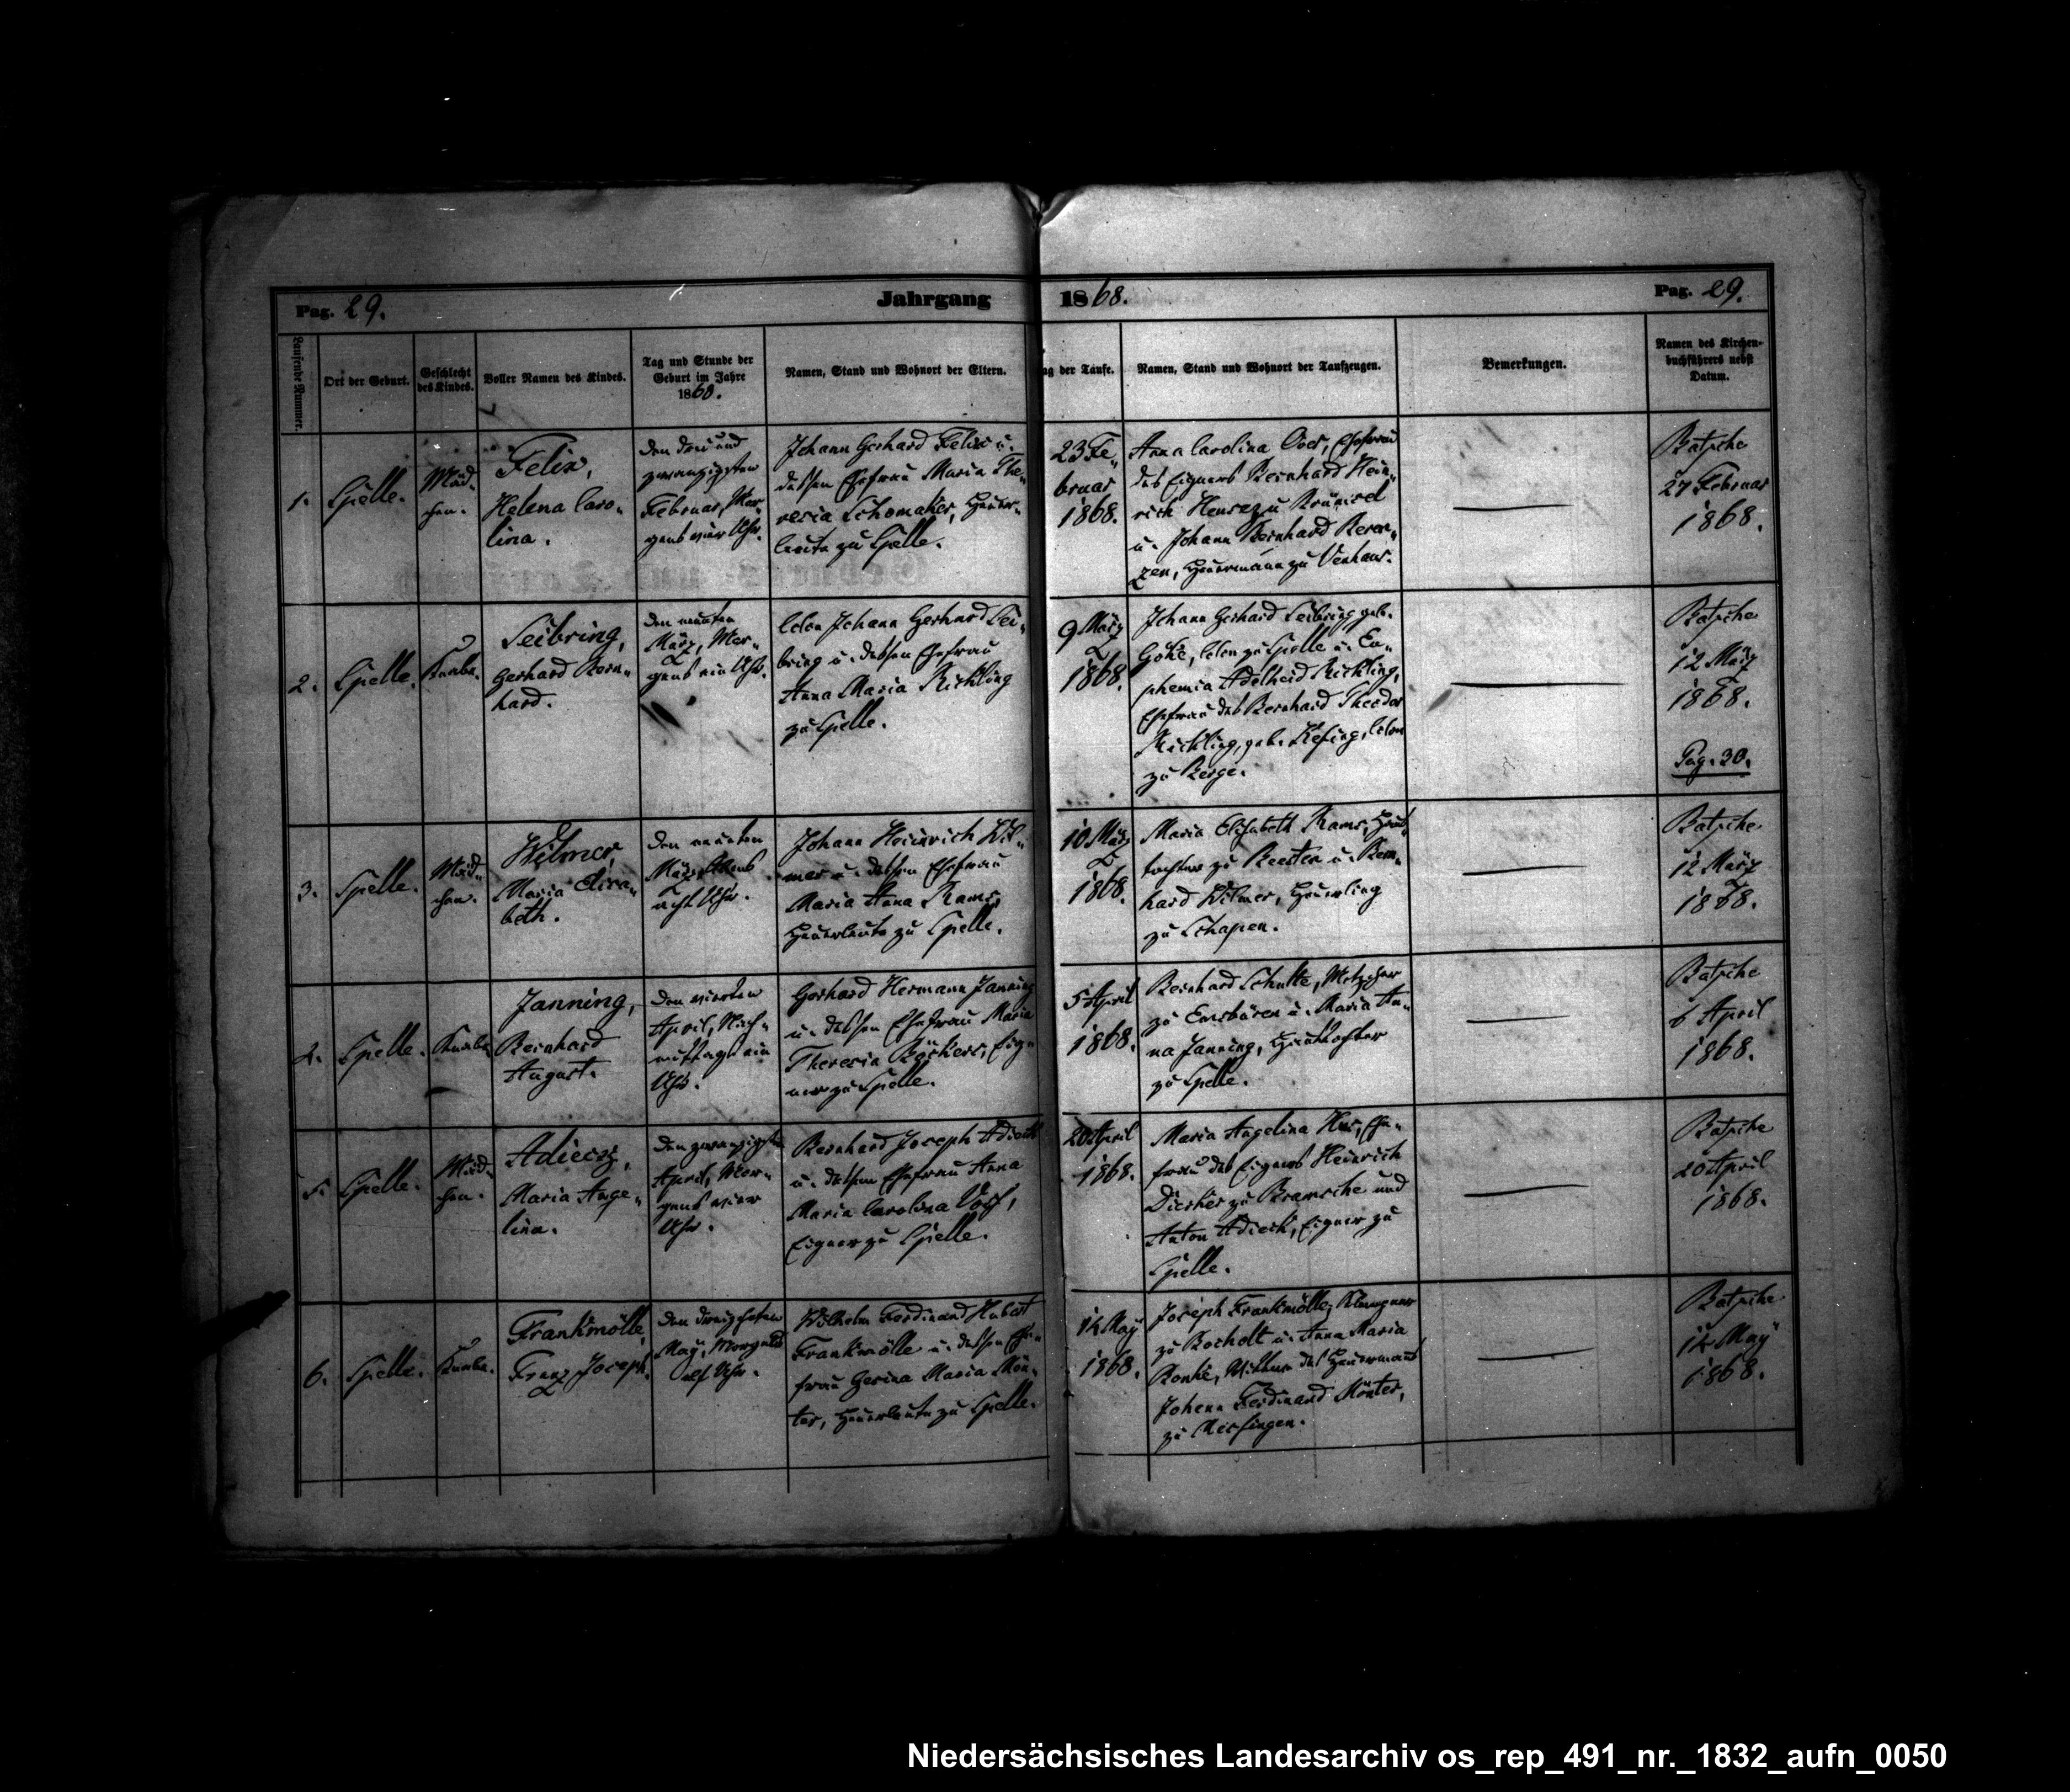 Pag. 29.
Jahrgang 1868.
Pag. 29.
Laufende Nummer.
Ort der Geburt.
Geschlecht
des Kindes.
Voller Namen des Kindes.
Tag und Stunde der
Geburt im Jahre
1868.
Namen, Stand und Wohnort der Eltern.
Tag der Taufe.
Namen, Stand und Wohnort der Taufzeugen.
Bemerkungen.
Namen des Kirchen-
buchführers nebst
Datum.
1.
Spelle.
Mäd-
chen.
Felix,
Helena Caro-
lina.
den drei und
zwanzigsten
Februar, Mor-
gens vier Uhr.
Johann Gerhard Felix u.
dessen Ehefrau Maria The-
resia Schomaker, Heuer-
leute zu Spelle.
23 Fe-
bruar
1868.
Anna Carolina Ehefrau
des Eigners Bernhard Hein-
rich zu
u. Johann Bernhard Beren-
zen, Heuermann zu Venhaus.
Batsche
27 Februar
1868.
2.
Spelle.
Knabe.
Leibring,
Gerhard Bern-
hard.
den neunten
März, Mor-
gens ein Uhr.
Colon Johann Gerhard Lei-
bring u. dessen Ehefrau
Anna Maria Rickling
zu Spelle.
9 März
1868.
Johann Gerhard Leibring geb.
Göke, Colon zu Spelle u. Eu-
phemia Adelheid Rickling,
Ehefrau des Bernhard Theodor
Rickling, geb. Colon
zu Berge.
Batsche
12 März
1868.
Pag. 30.
3.
Spelle.
Mäd-
chen.
Wilmer,
Maria Elisa-
beth.
den neunten
März, Abends
acht Uhr.
Johann Heinrich Wil-
mer u. dessen Ehefrau
Maria Anna Rams,
Heuerleute zu Spelle.
10 März
1868.
Maria Elisabeth Rams, Haus-
tochter zu Beesten u. Bern-
hard Wilmer, Heuerling
zu Schapen.
Batsche
12 März
1868.
4.
Spelle.
Knabe
Janning,
Bernhard
August.
den vierten
April, Nach-
mittags ein
Uhr.
Gerhard Hermann Janning
u. dessen Ehefrau Maria
Theresia Börkers, Eig-
ner zu Spelle.
5 April
1868.
Bernhard Schulte, Metzger
zu Emsbüren u. Maria An-
na Janning, Haustochter
zu Spelle.
Batsche
6 April
1868.
5.
Spelle.
Mäd-
chen.
Adieck,
Maria Ange-
lina.
den zwanzigsten
April, Mor-
gens vier
Uhr.
Bernhard Joseph Adieck
u. dessen Ehefrau Anna
Maria Carolina Voß,
Eigner zu Spelle.
20 April
1868.
Maria Angelina Ehe-
frau des Eigners Heinrich
zu Bramsche und
Anton Adieck, Eigner zu
Spelle.
Batsche
20 April
1868.
6.
Spelle.
Knabe.
Frankmölle,
Franz Joseph.
den dreizehnten
May, Morgens
elf Uhr.
Wilhelm Ferdinand Hubert
Frankmölle u. dessen Ehe-
frau Gesina Maria Mön-
ter, Heuerleute zu Spelle.
14 May
1868.
Joseph Frankmölle, Klempner
zu Bocholt u. Anna Maria
Wittwe des Heuermann
Johann Ferdinand Mönter,
zu Messingen.
Batsche
14 May
1868.
Niedersächsisches Landesarchiv os_rep_491_nr._1832_aufn_0050